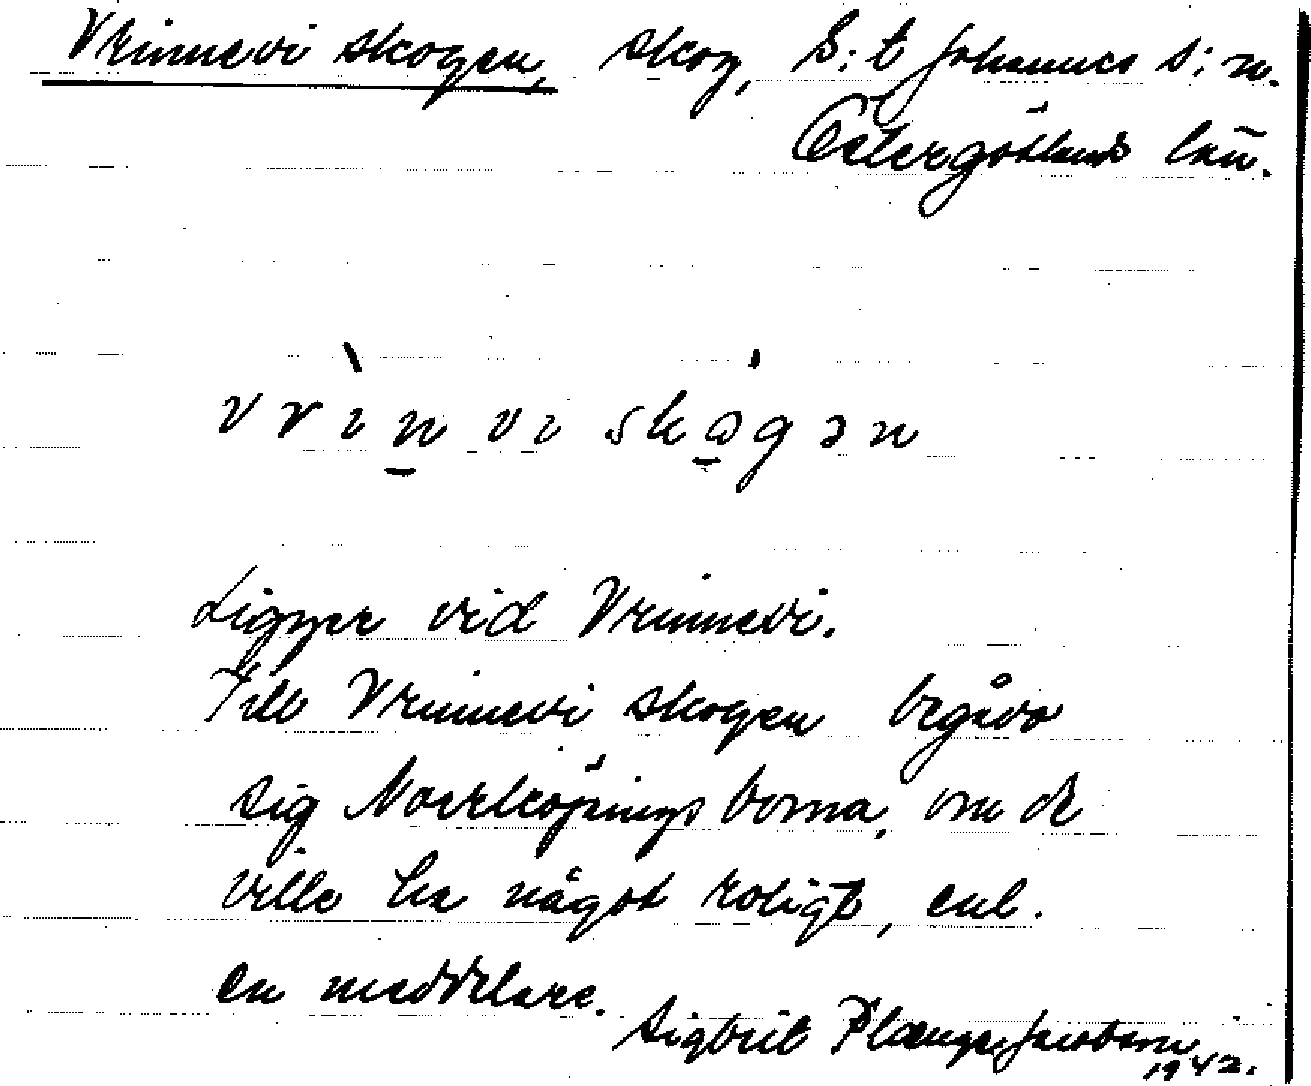 Vrinnevi skogen, skog, S:t Johannes s:n.
Östergötlands län.
vrìn vi skógən
Ligger vid Vrinnevi.
Till Vrinnevi skogen begåvo
sig Norrköpings borna, om de
ville ha något roligt, enl.
en meddelare.
Sigbrit Plænge Jacobson
1942.